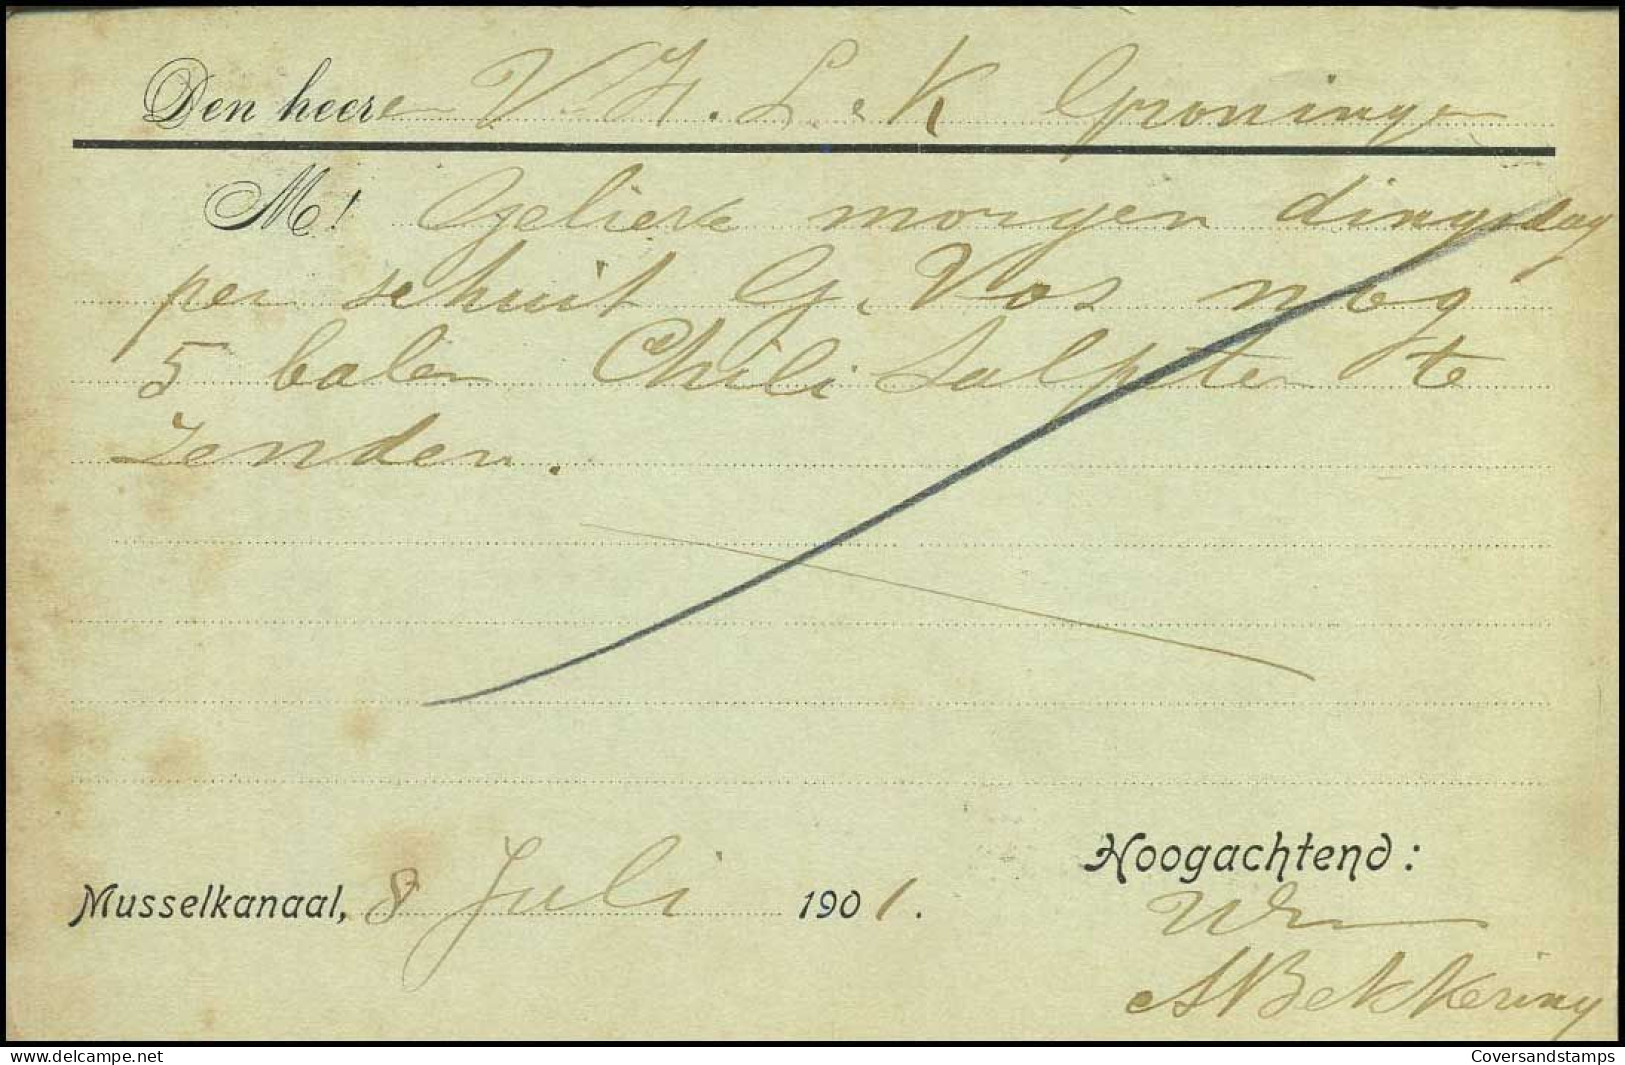 Den heeren V. H. L. & K Groningen
M! Gelieve morgen dingsdag
per schuit G. Vos nog
5 balen Chili Salpeter te
zenden.
Hoogachtend:
Musselkanaal, 8 Juli 1901.
A Bekkering
delcampe.net
Coversandstamps